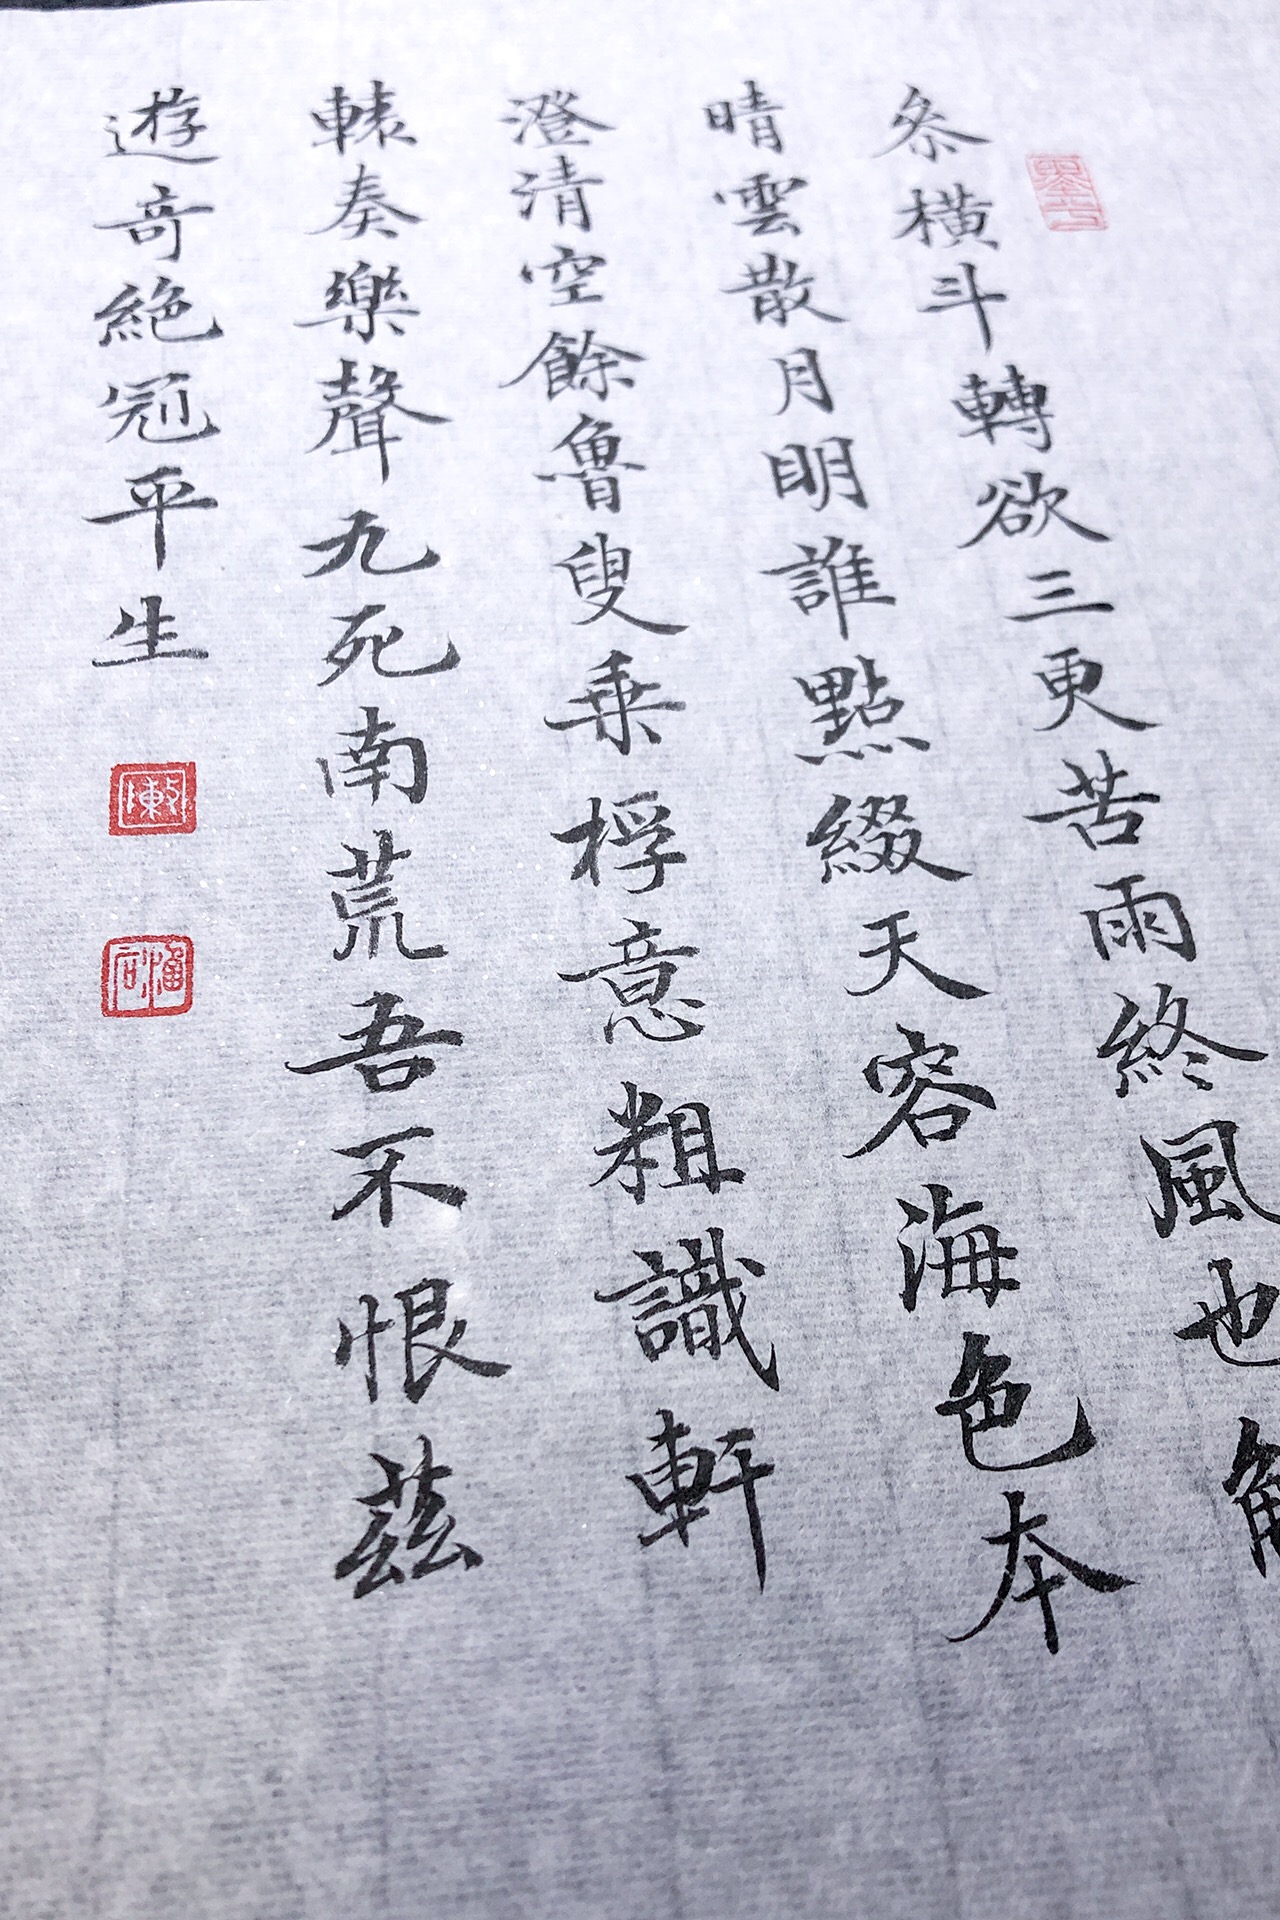 參橫斗轉欲三更苦雨終風也解
晴雲散月明誰點綴天容海色本
澄清空餘魯叟乗桴意粗識軒
轅奏樂聲九死南荒吾不恨茲
遊奇絶冠平生